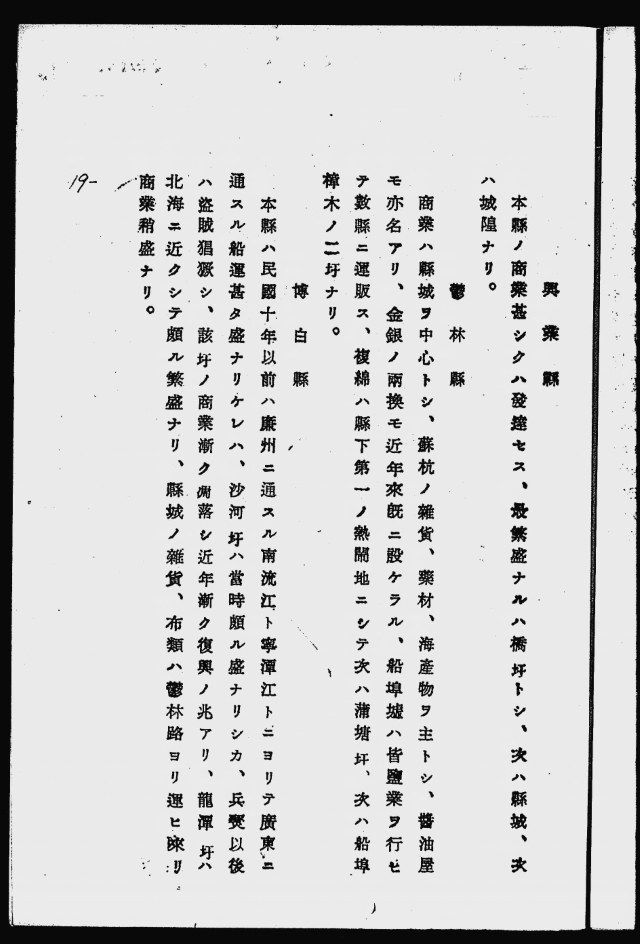 興業縣
本縣ノ商業甚シクハ發達セス、最繁盛ナルハ橋圩トシ、次ハ縣城、次
ハ城隍ナリ。
鬱林縣
商業ハ縣城ヲ中心トシ、蘇杭ノ雜貨、藥材、海產物ヲ主トシ、醬油屋
モ亦名アリ、金銀ノ兩換モ近年來旣ニ設ケラル、船埠墟ハ皆鹽業ヲ行ヒ
テ數縣ニ運販ス、複綿ハ縣下第一ノ熱鬧地ニシテ次ハ蒲塘圩、次ハ船埠
樟木ノ二圩ナリ。
博白縣
本縣ハ民國十年以前ハ廉州ニ通スル南流江ト寧潭江トニヨリテ廣東ニ
通スル船運甚タ盛ナリケレハ、沙河圩ハ當時頗ル盛ナリシカ、兵燹以後
ハ盜賊猖獗シ、該圩ノ商業漸ク凋落シ近年漸ク復興ノ兆アリ、龍潭圩ハ
北海ニ近クシテ頗ル繁盛ナリ、縣城ノ雜貨、布類ハ鬱林路ヨリ運ヒ來リ
商業稍盛ナリ。
19-